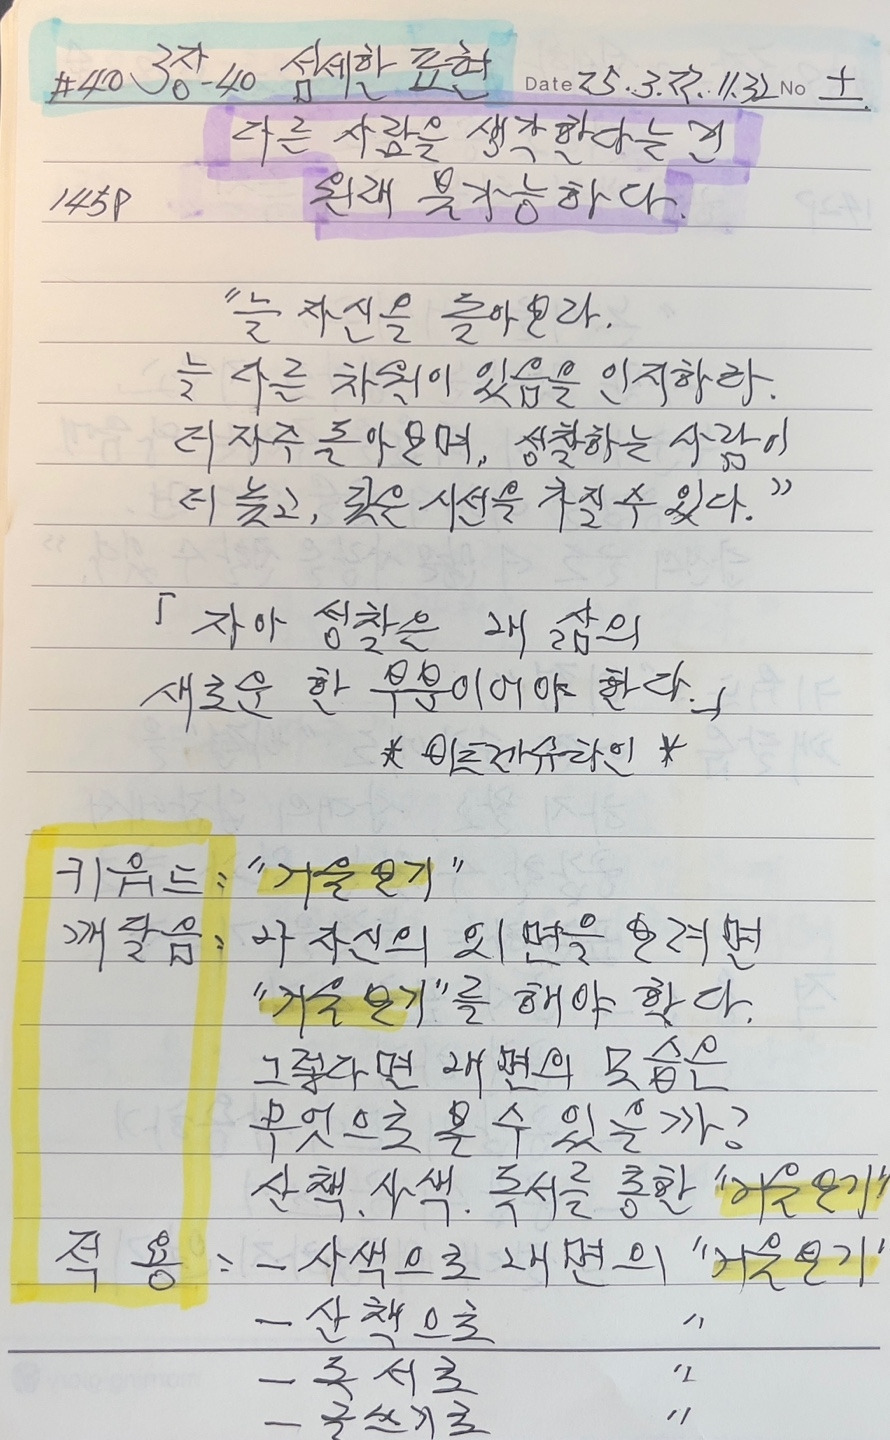 #40 3장-40 섬세한 표현 Date 25.3.22. 11:32 No 土.
다른 사람을 생각한다는 건
145P 원래 불가능하다.
"늘 자신을 돌아보라.
늘 다른 차원이 있음을 인지하라.
더 자주 돌아보며, 성찰하는 사람이
더 높고, 깊은 시선을 가질 수 있다."
「자아 성찰은 내 삶의
새로운 한 부분이어야 한다.」
* 비트겐슈타인 *
키워드 : "거울보기"
깨달음 : 나 자신의 외면을 보려면
"거울보기"를 해야 한다.
그렇다면 내면의 모습은
무엇으로 볼 수 있을까?
산책.사색.독서를 통한 "거울보기"
적용 : - 사색으로 내면의 "거울보기"
- 산책으로 "
- 독서로 "
- 글쓰기로 "